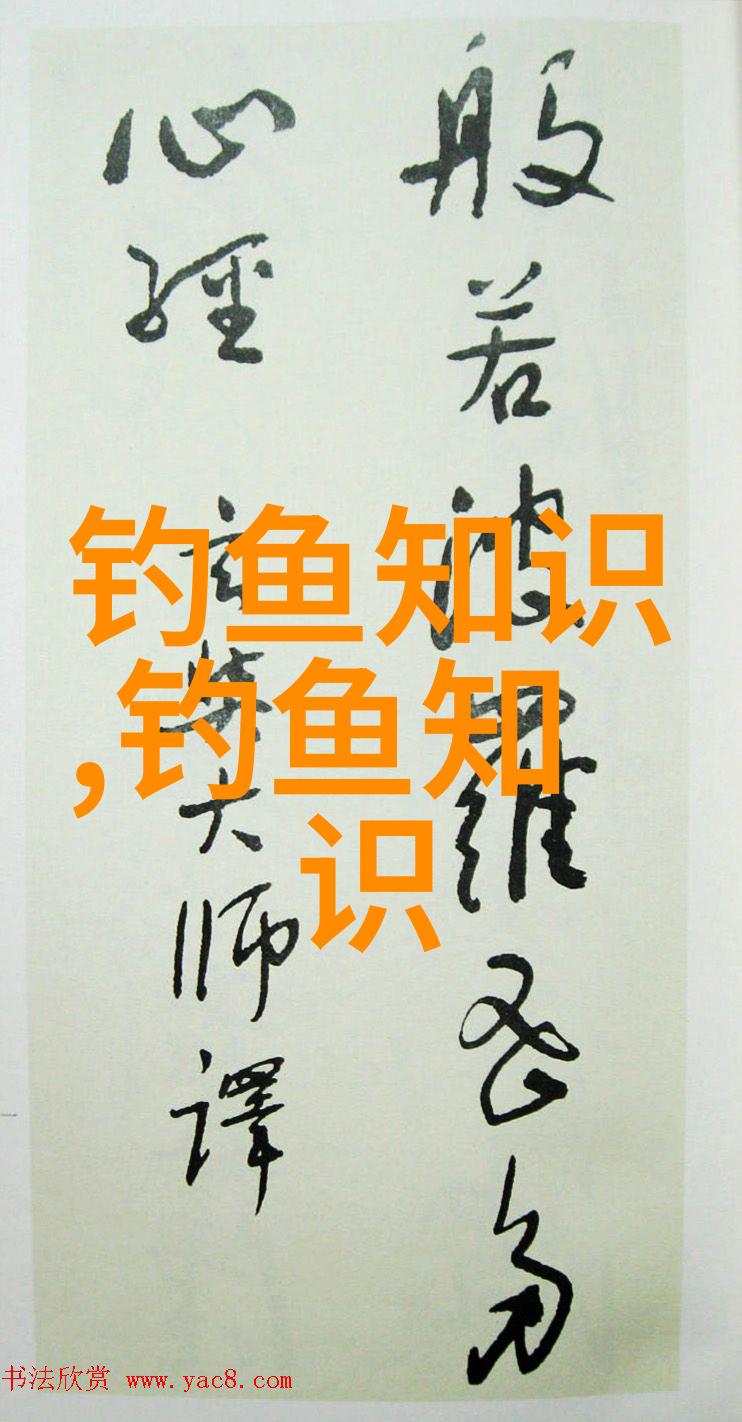 般若波羅蜜多
心經 玄奘大师譯
钓鱼知识
,钓鱼知
识
书法欣赏 www.yac8.com